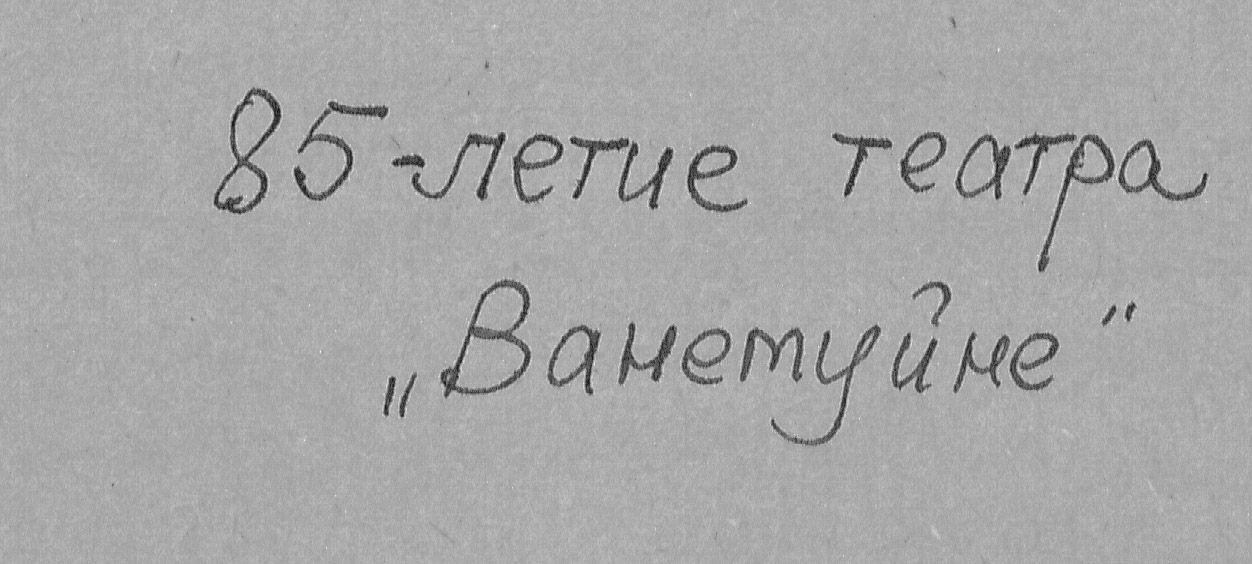 85-летие театра
„Ванемуйне“